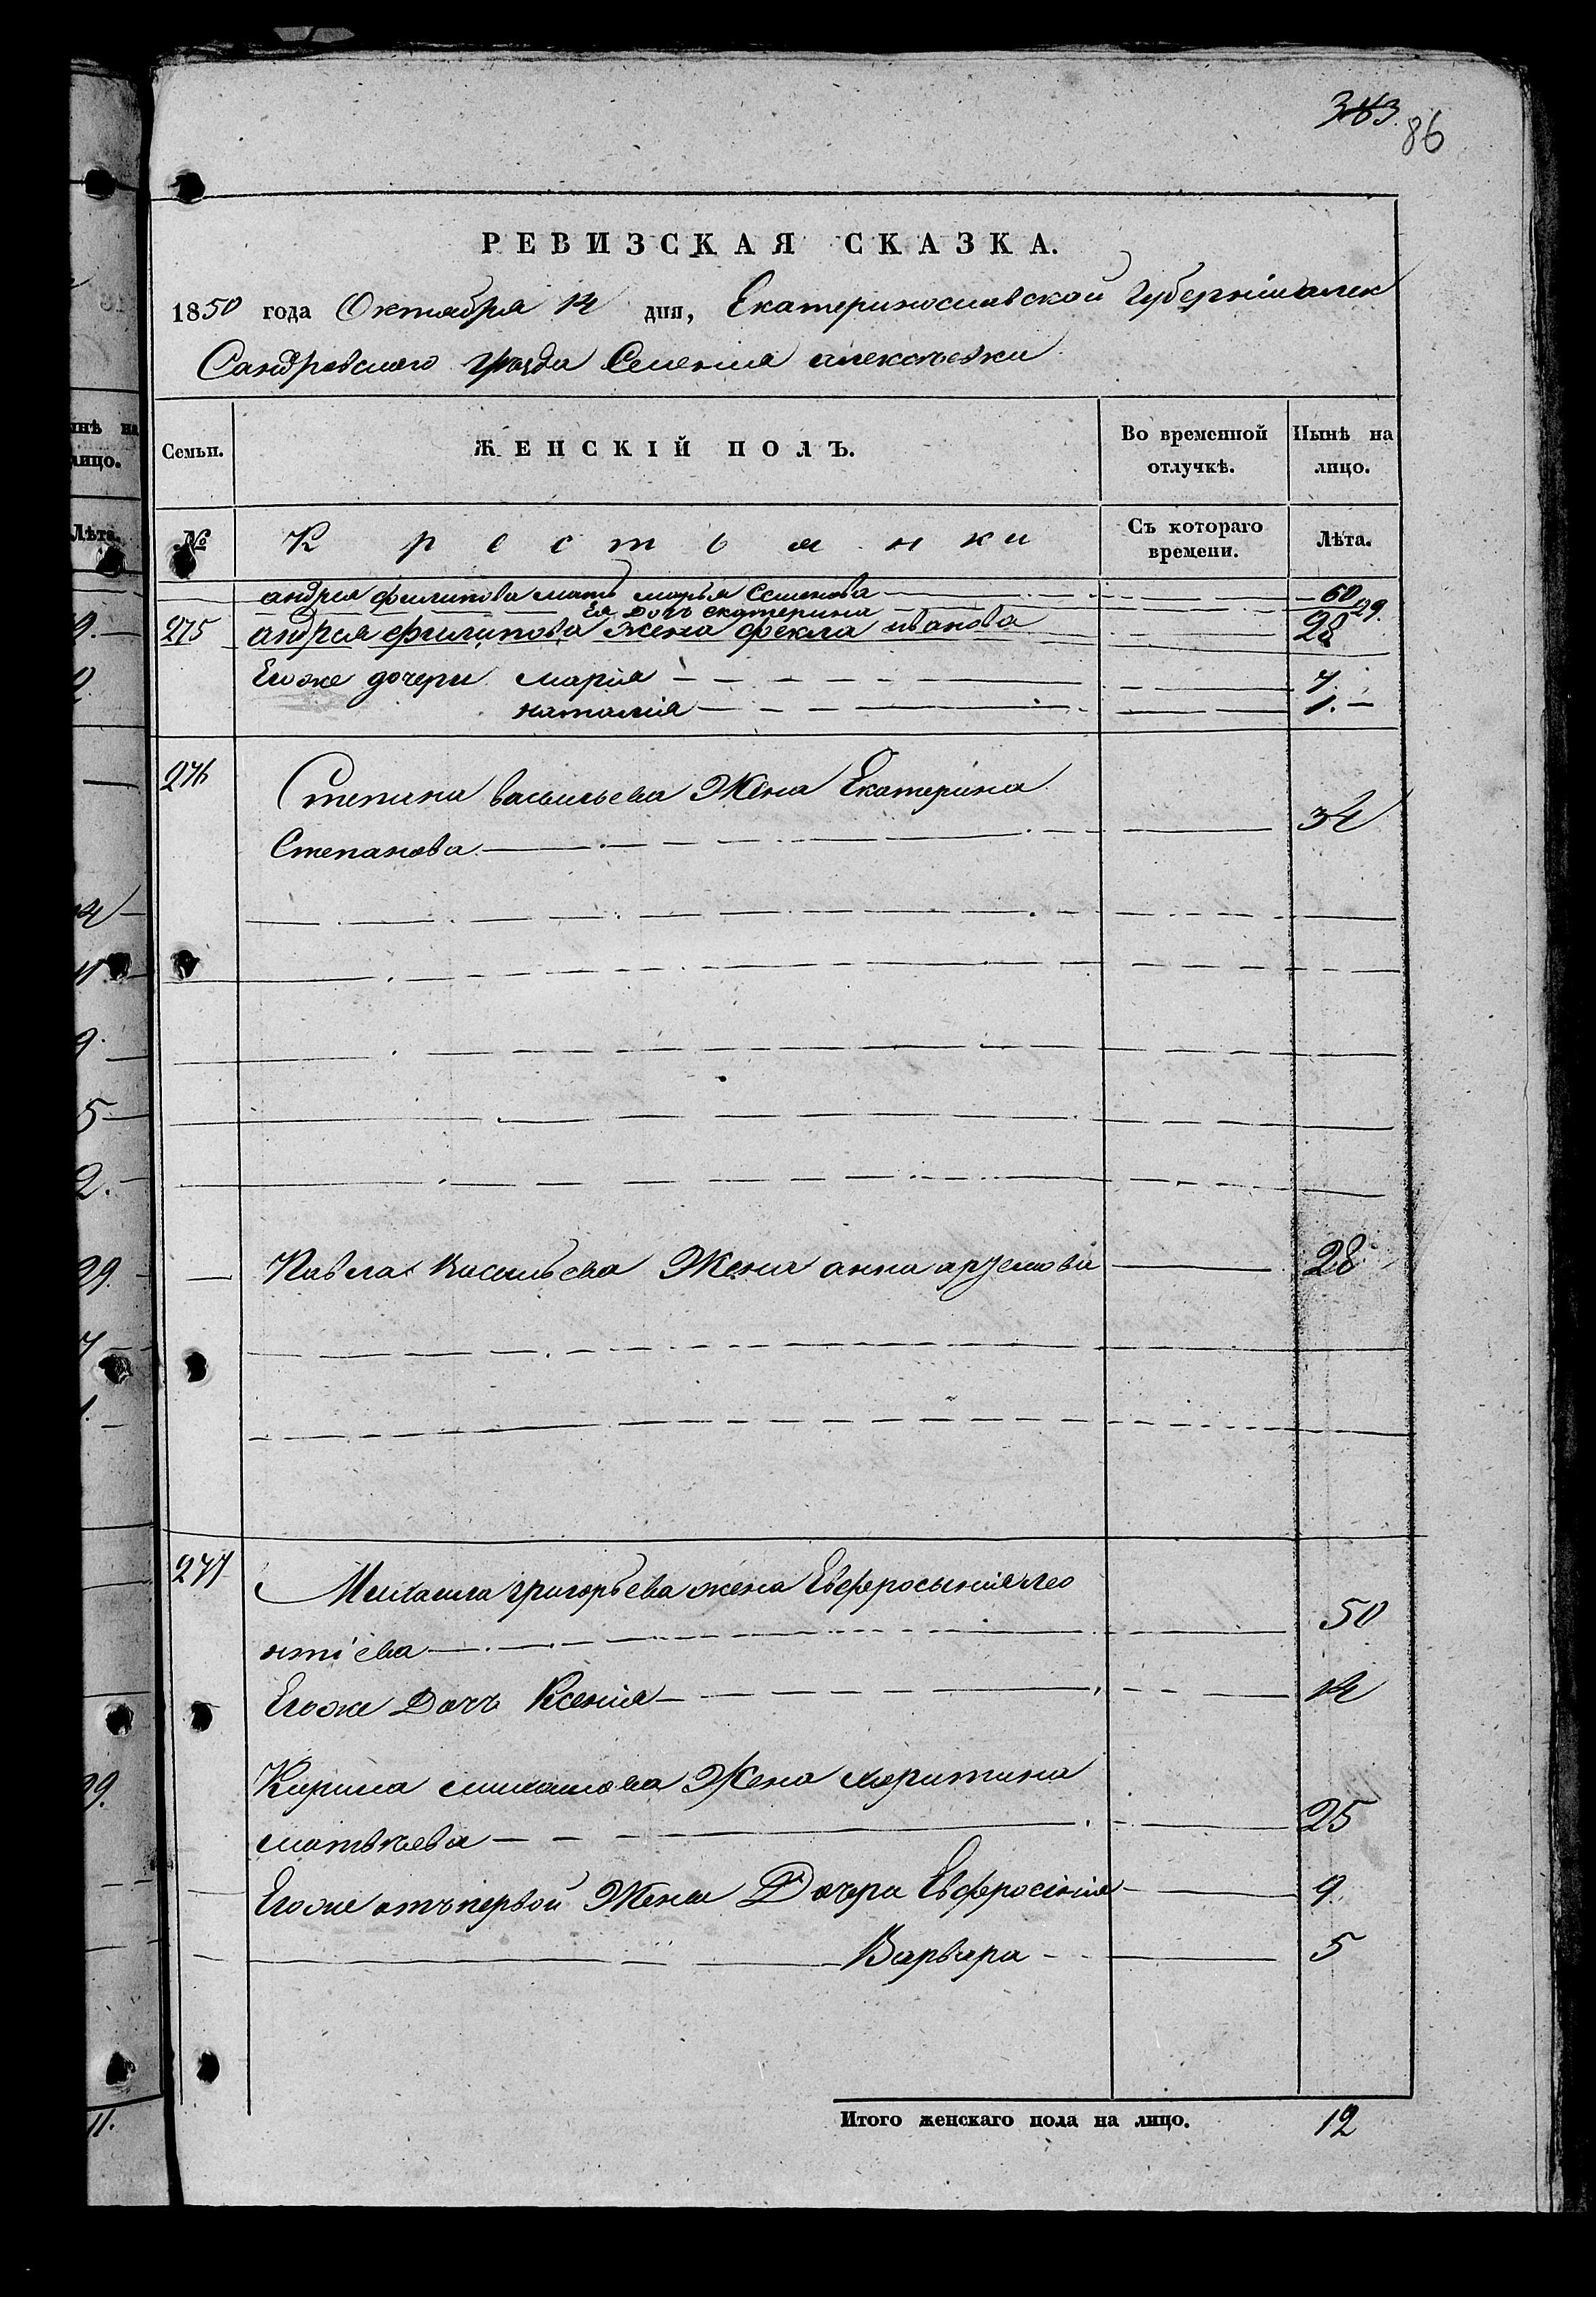 383. 86
РЕВИЗСКАЯ СКАЗКА.
1850 года Октября 14 дня, Екатеринославской Губерніи алек
Сандровского уѣзда Селенія алексѣевки
Семьи. ЖЕНСКІЙ ПОЛЪ. Во временной отлучкѣ. Нынѣ на лицо.
№ Крестьянки Съ котораго времени. Лѣта.
андрея филипова мать марья Семенова 60
Ея дочь екатерина 29.
275 андрея филипова жена фекла иванова 28
Егоже дочери марія 7.
наталія 1.
276 Степана васильева Жена Екатерина
Степанова 34
Павла Васильева Жена анна артемова 28
277 Михаила григорьева жена Евфросынія лео
нтіева 50
Егоже Дочь Ксенія 14
Кирила михаилова Жена харитина
матвѣева 25
Егоже отъ первой Жены Дочери Евфросінія 9
Варвара 5
Итого женскаго пола на лицо. 12
инѣ на
лицо.
Лѣта.
9.
4
9.
5
2.
29.
7
1.
11.